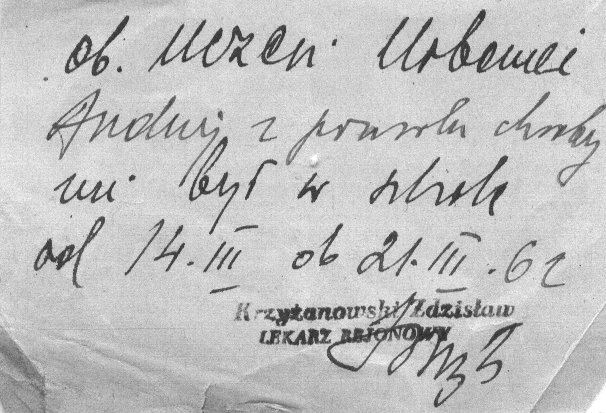 ob. Uczeń Urbański
Andrzej z powodu choroby
nie był w szkole
od 14. III do 21. III. 62
Krzyżanowski Zdzisław
LEKARZ REJONOWY